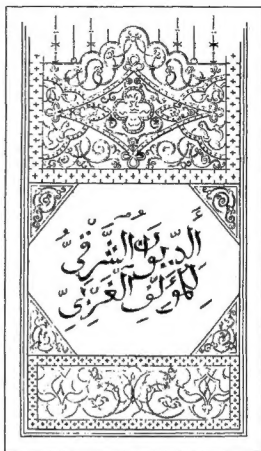 الدِّيوَانُ الشَّرْقِيُّ
لِلمُؤَلِّفِ الغَرْبِيِّ